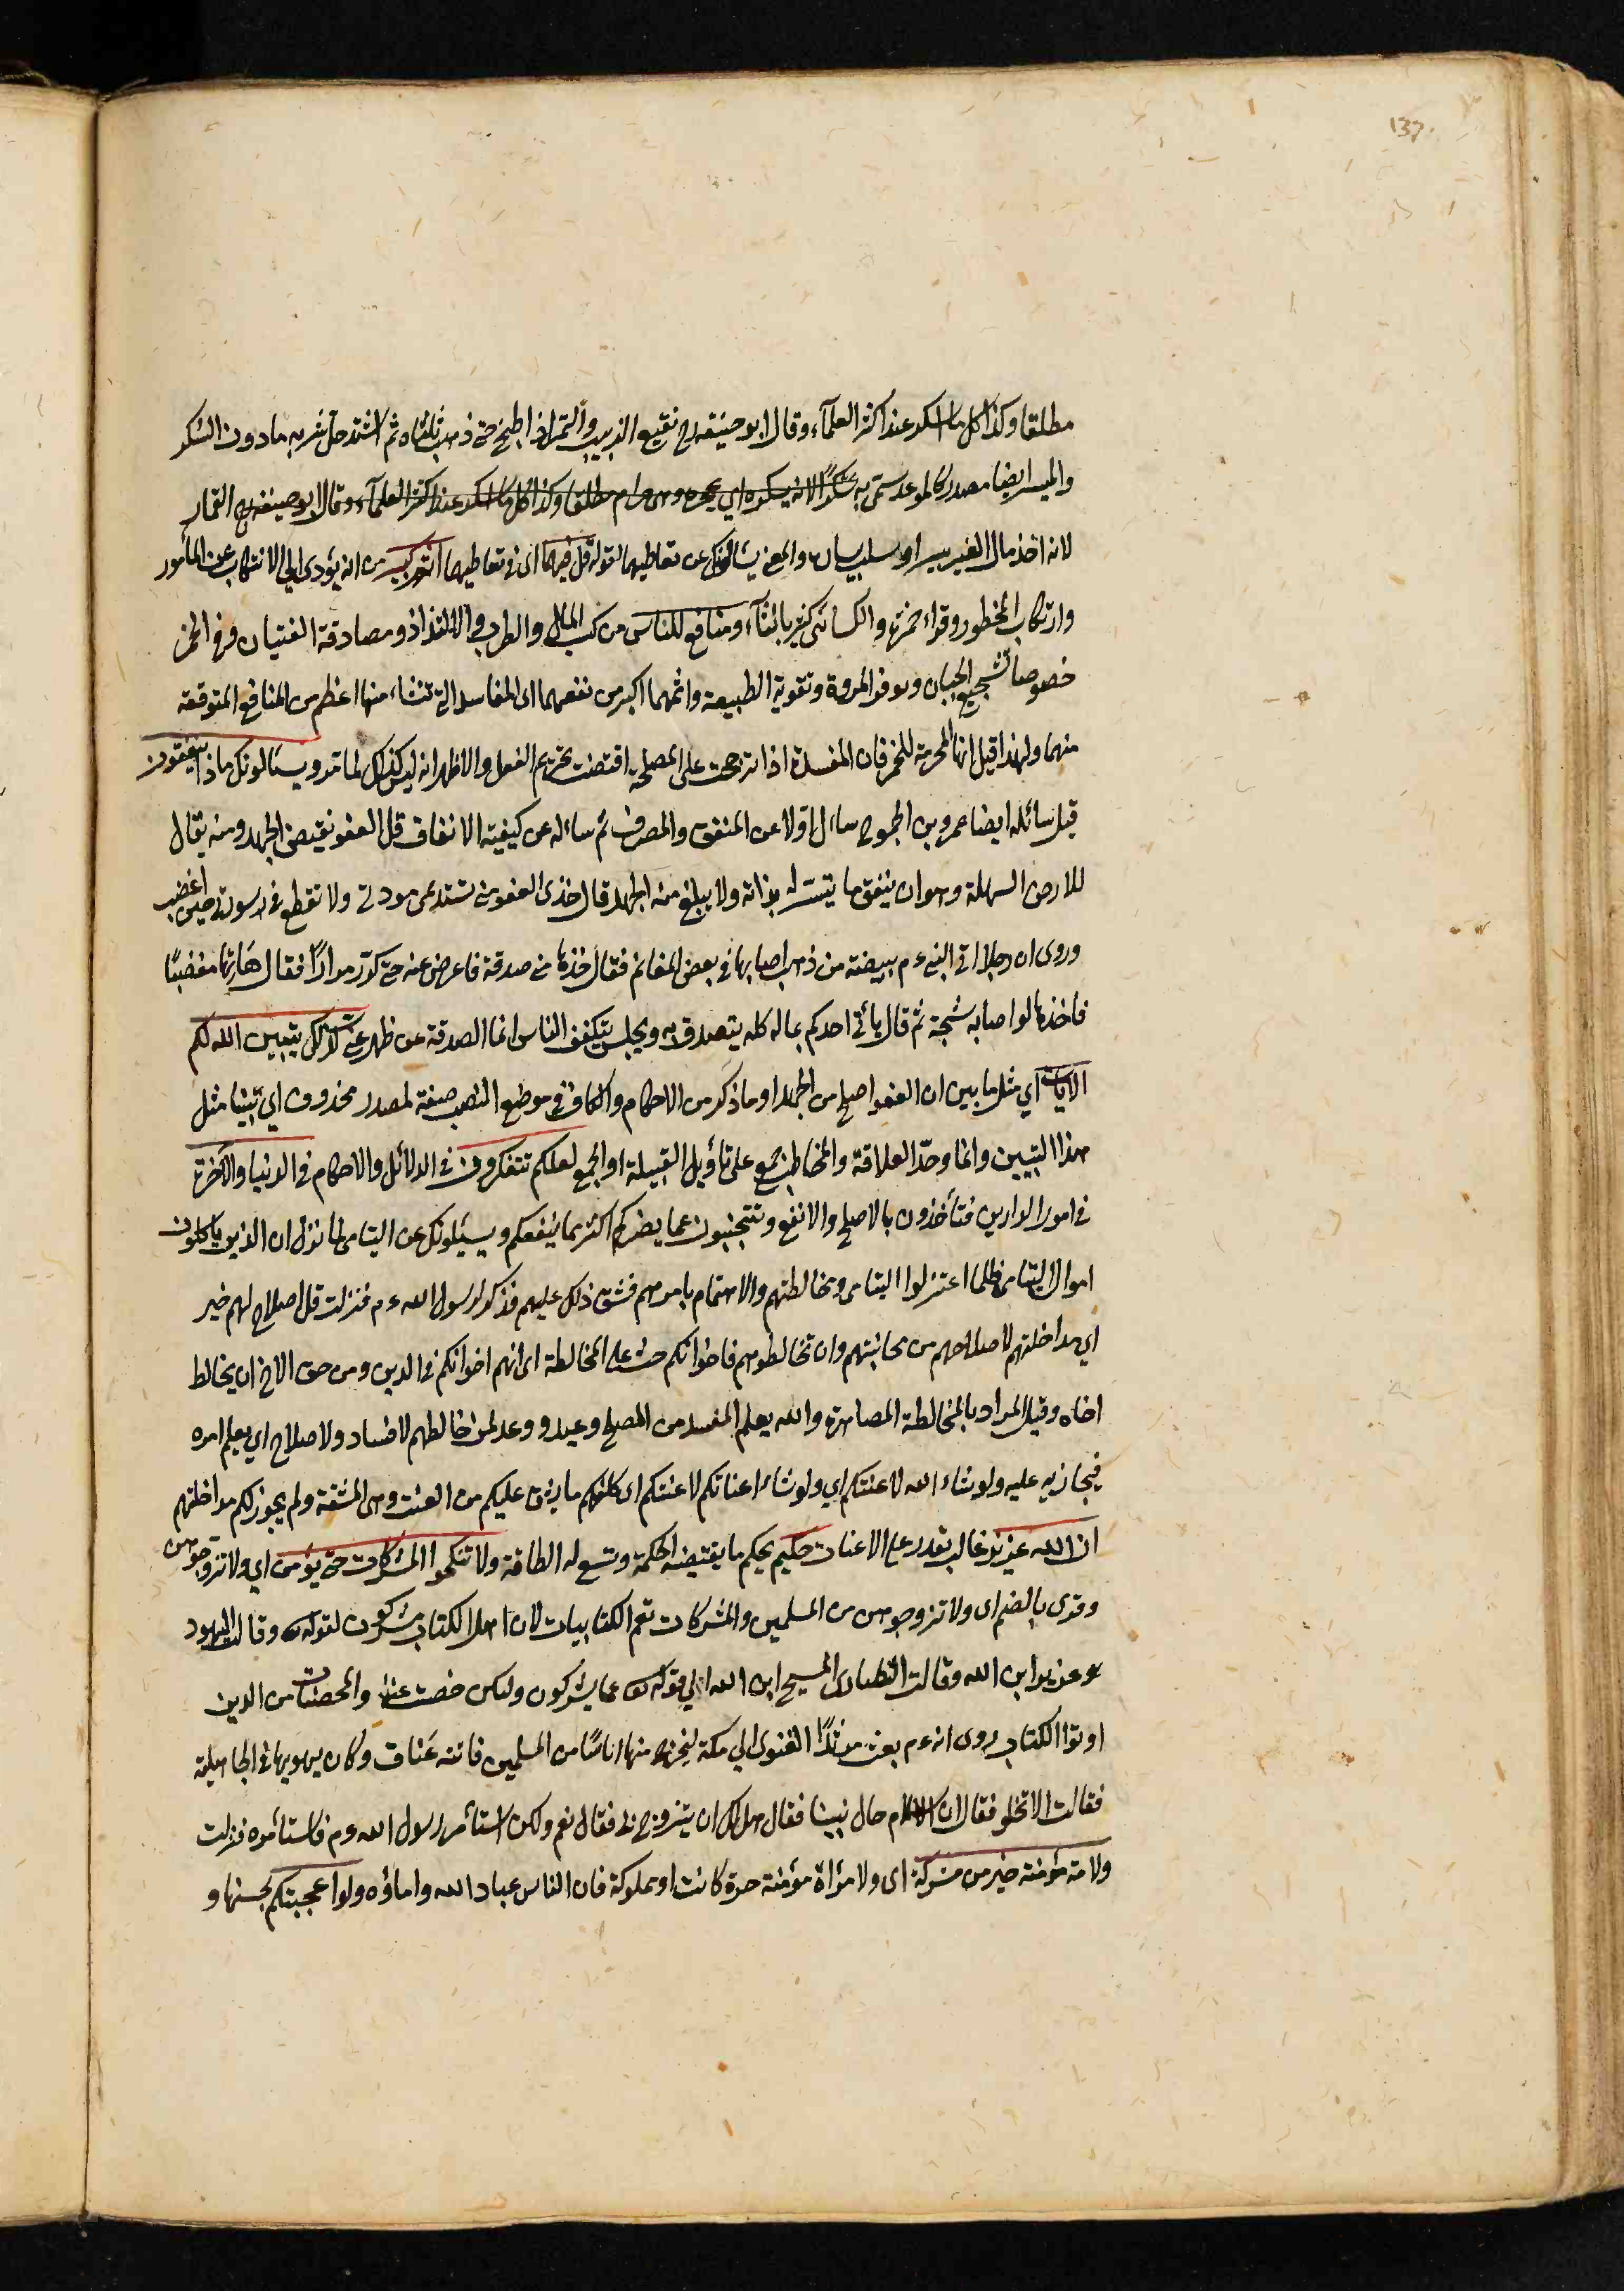 137.
مطلقا وكذا كل ما اسكر عند اكثر العلمآء وقال ابو حنيفه رح نقيع الزبيب والتمر اذا طبخ حتى ذهب ثلثاه ثم اشتد حل شربه مادون السكر
والميسر ايضا مصدر كالموعد سمّى به سُكرًا لانه يسكره اي يحجره وهى حرام مطلقا وكذا كل ما اسكر عند اكثر العلمآء وقال ابو حنيفه رح القمار
لانه اخذ مال الغير بيسر او سلب يساره والمعنى يسألونك عن تعاطيهما لقوله قل فيهما اى فى تعاطيهما اثم كبير من انه يؤدى الى الانتكاب عن المأمور
وارتكاب المخطور وقراء حمزة والكسائى كثير بالثآء ومنافع للناس من كسب المال والطرب والالتذاذ ومصادقة الفتيان وفى الخمر
خصوصا تشجيع الجبان وتوفر المروة وتقوية الطبيعة واثمهما اكبر من نفعهما اى المفاسد التى تنشاء منها اعظم من المنافع المتوقعة
منهما ولهذا قيل انها المحرمة للخمر فان المفسدة اذا ترجحت على المصلحة اقتضت تحريم الفعل والاظهر انه ليس كذلك لما مر ويسئالونك ماذا ينفقون
قيل سائله ايضا عمرو بن الجموح سال اولا عن المنفق والمصرف ثم ساله عن كيفية الانفاق قل العفو نقيض الجهد ومنه يقال
للارض السهلة وهو ان ينفق ما يتيسر له بذله ولا يبلغ منه الجهد قال خذى العفو منى تستدعى مودتى ولا تقطع فى سورتى حين اغضب
وروى ان رجلا اتى النبى ءم ببيضة من ذهب اصابها فى بعض المغانم فقال خذها منى صدقة فاعرض عنه حتى كرّر مرارًا فقال هَاتها مغضبًا
فاخذها لو اصابه شجته ثم قال يأتى احدكم بماله كله يتصدق به ويجلس يتكفف الناس انما الصدقة عن ظهر غنى كذلك يبين الله لكم
الايات اي مثل ما بين ان العفو اصلح من الجهد او ما ذكر من الاحكام والكاف فى موضع النصب صفة لمصدر محذوف اي تبيينا مثل
هذا التبيين وانما وحّد العلاقة والمخاطب جمع على تأويل القبيلة او الجمع لعلكم تتفكرون فى الدلائل والاحكام فى الدنيا والاخرة
فى امور الدارين فتأخذون بالاصلح والانفع وتتجنبون عما يضركم اكثر مما ينفعكم ويسئلونك عن اليتامى لما نزل ان الذين ياكلون
اموال اليتامى ظلما اعتزلوا اليتامى ومخالطتهم والاهتمام بامرهم فشق ذلك عليهم فذكر لرسول الله ءم فنزلت قل اصلاح لهم خير
اي مداخلتهم لاصلاحهم من مجانبتهم وان تخالطوهم فاخوانكم حث على المخالطة اى انهم اخوانكم فى الدين ومن حق الاخ ان يخالط
اخاه وقيل المراد بالمخالطة المصاهرة والله يعلم المفسد من المصلح وعيد ووعد لمن خالطهم لافساد ولاصلاح اي يعلم امره
فيجازيه عليه ولو شاء الله لاعنتكم اي ولو شاء اعناتكم لاعنتكم اى كلفكم ما يشق عليكم من العنت وهى المشقة ولم يجوز لكم مداخلتهم
ان الله عزيز غالب يقدر على الاعنات حكيم يحكم ما يقتضيه الحكمة وتسع له الطاقة ولا تنكحوا المشركات حتى يؤمن اي ولا تزوجوهن
وقرى بالضم اى ولا تزوجوهن من المسلمين والمشركات تعم الكتابيات لان اهل الكتاب مشركون لقوله تعـ وقالت اليهود
عزير ابن الله وقالت النصارى المسيح ابن الله الى قوله تعـ عما يشركون ولكن خصت عنها والمحصنات من الذين
اوتوا الكتاب روى انه ءم بعث مرثدًا الغنوى الي مكة ليخرج منها اناسًا من المسلمين فاتته عَناق وكان يهويها فى الجاهلية
فقالت الا تخلو فقال ان الاسلام حال بيننا فقال هل لك ان يتزوج بى فقال نعم ولكن استأمر رسول الله ءم فاستأمره فنزلت
ولامة مؤمنة خير من مشركة اى ولامرأة مؤمنة حرة كانت او مملوكة فان الناس عباد الله واماؤه ولو اعجبتكم بحسنها و